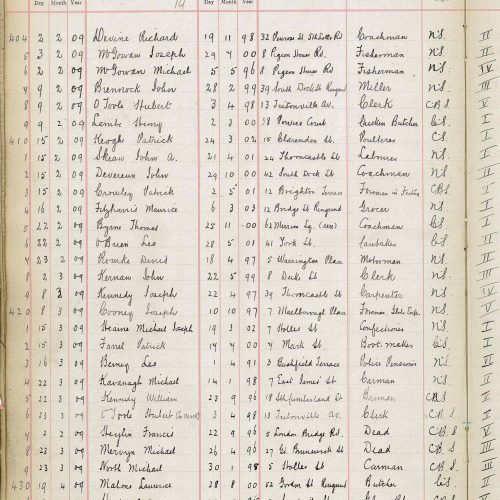 19
Day Month Year Day Month Year
404 2 2 09 Devine Richard 19 11 98 32 Penrose St. Coachman N.S. II
5 3 2 09 McGowan Joseph 29 4 00 8 Pigeon House Rd. Fisherman N.S. II
6 2 2 09 McGowan Michael 5 5 96 8 Pigeon House Rd. Fisherman N.S. IV
7 9 2 09 Brennock John 28 2 99 39 South Dock St Ringsend Miller N.S. III
8 9 2 09 O'Toole Hubert 3 4 98 13 Tritonville Av. Clerk C.B.S. V
9 9 2 09 Lambe Henry 2 3 00 38 Powers Court Chicken Butcher C.S. I
410 15 2 09 Keogh Patrick 24 3 02 15 Clarendon St. Poulterer C.S. I
1 15 2 09 Skean John A. 21 4 01 24 Thorncastle St. Labourer N.S. I
2 15 2 09 Devereux John 29 10 00 42 South Dock St Coachman N.S.
3 15 2 09 Crowley Patrick 2 5 01 12 Brighton Terrace Foreman in C.B.S. I
4 16 2 09 Fitzharris Maurice 6 3 03 12 Bridge St Ringsend Grocer N.S. I
5 22 2 09 Byrne Thomas 25 11 00 62 Merrion Sq. Coachman C.S. I
6 22 2 09 O'Brien Leo 28 5 01 41 York St. C.S. II
7 23 2 09 Rourke Denis 18 4 97 5 Warrington Place Motorman N.S. II
8 2 3 09 Kernan John 22 5 99 8 Duke St Clerk N.S. III
9 8 3 09 Kennedy Joseph 22 4 97 39 Thorncastle St Carpenter N.S. IV
420 8 3 09 Cooney Joseph 10 10 97 7 Marlborough Place Foreman N.S. II
1 15 3 09 Michael Joseph 19 3 02 7 Holles St Confectioner N.S. I
2 15 3 09 Farrel Patrick 14 7 00 4 Mark St Boot maker C.S. I
3 16 3 09 Berney Leo 1 4 91 3 Bushfield Terrace Police Pensioner N.S.
4 22 3 09 Kavanagh Michael 14 1 98 7 East James St Carman N.S. II
5 22 3 09 Kennedy William 23 9 96 18 Sth Cumberland St C.B.S.
6 23 3 09 O'Toole Hubert 3 4 98 13 Tritonville Av. Clerk C.B.S. V
7 2 09 Heylin Francis 22 9 96 5 London Bridge Rd. Dead C.B.S.
8 23 3 09 Mervyn Michael 26 4 96 27 Gt Brunswick St Dead C.B.S. III
9 23 3 09 North Michael 30 1 98 5 Holles St Carman C.B.S. II
430 19 4 09 Malone Laurence 28 8 00 52 Gordon St Ringsend Butcher C.S. II